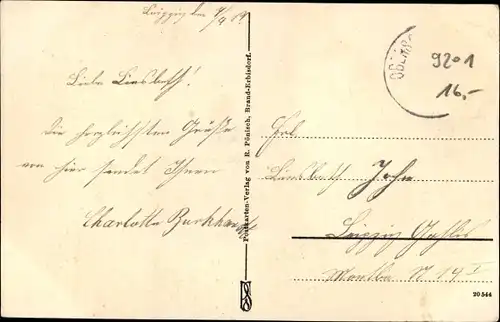 Leipzig den 4/9 19.
Liebe Liesbeth!
Die herzlichsten Grüße
von hier sendet Ihnen
Charlotte Burkhardt
Postkarten-Verlag von R. Pönisch, Brand-Erbisdorf.
9201
16,-
Frl.
Liesbeth John
Leipzig Gohlis
N 19 I
20 544